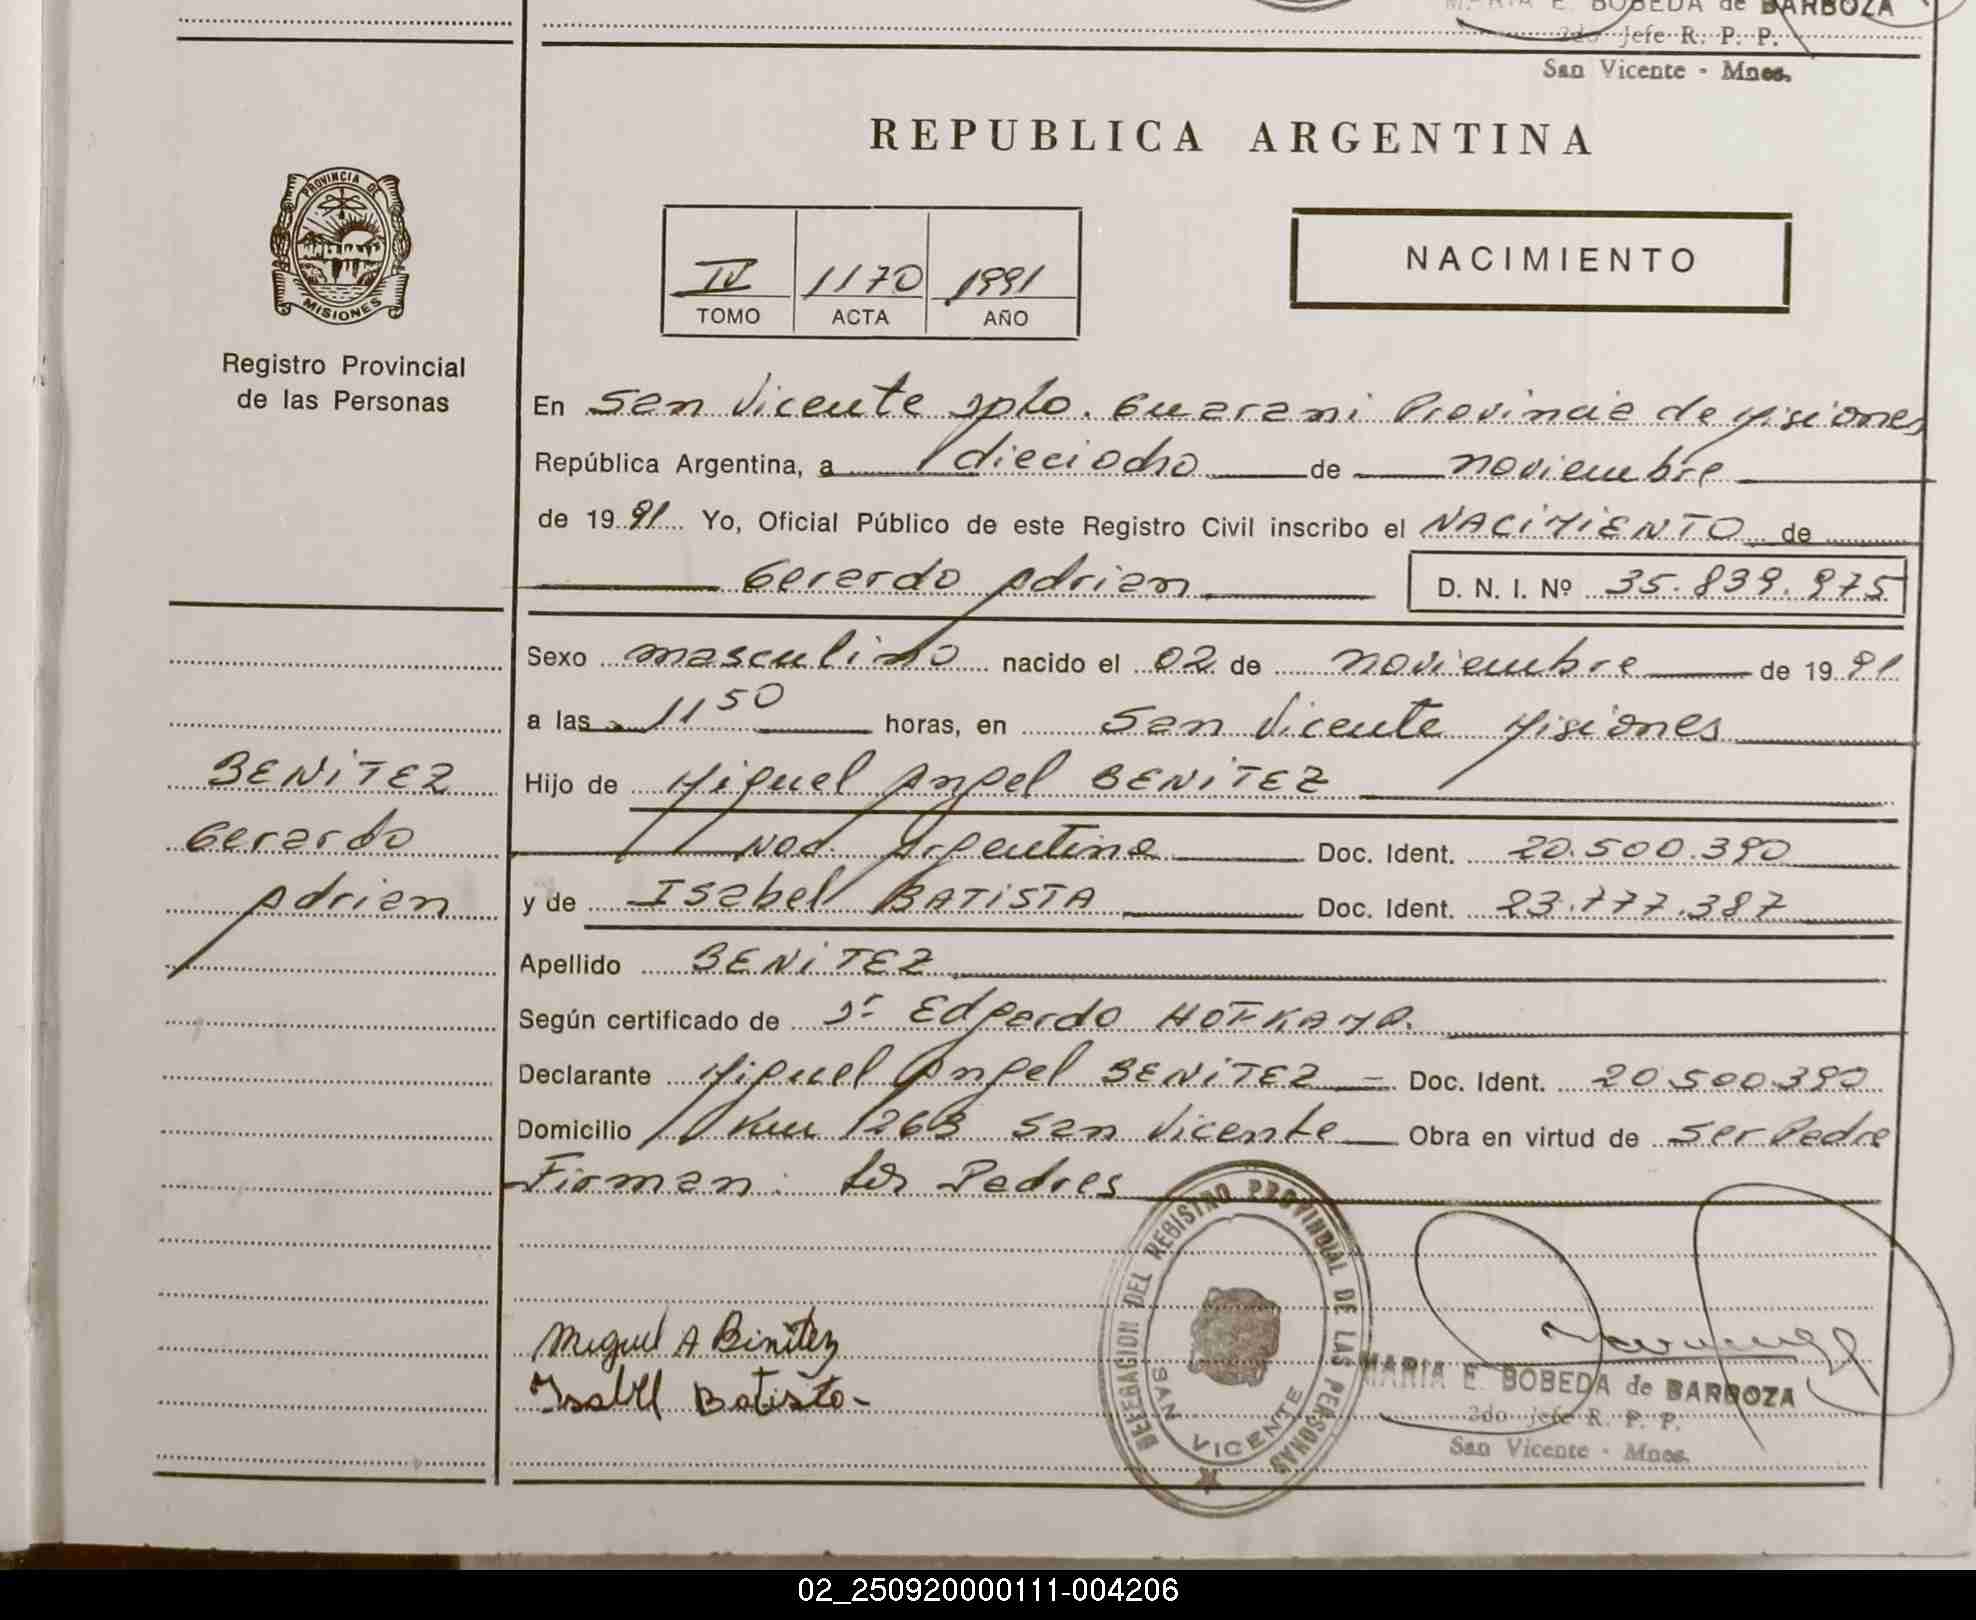 MARIA E. BOBEDA de BARBOZA
2do Jefe R. P. P.
San Vicente - Mnes.
REPUBLICA ARGENTINA
PROVINCIA DE
MISIONES
Registro Provincial
de las Personas
IV 1170 1991
TOMO ACTA AÑO
NACIMIENTO
En San Vicente Dpto. Guarani Provincia de Misiones
República Argentina, a dieciocho de noviembre
de 19 91 Yo, Oficial Público de este Registro Civil inscribo el NACIMIENTO de
Gerardo Adrian D. N. I. Nº 35.839.975
Sexo masculino nacido el 02 de noviembre de 19 91
a las 11 50 horas, en San Vicente Misiones
BENITEZ
Gerardo
Adrian
Hijo de Miguel Angel BENITEZ
Nac. Argentina Doc. Ident. 20.500.390
y de Isabel BATISTA Doc. Ident. 23.777.387
Apellido BENITEZ
Según certificado de Dr Edgardo HOFKAMP.
Declarante Miguel Angel BENITEZ - Doc. Ident. 20.500.390
Domicilio Km 1268 San Vicente Obra en virtud de ser Padre
Firman: los Padres
Miguel A Binitez
Isabel Batista-
DELEGACION DEL REGISTRO PROVINCIAL DE LAS PERSONAS
SAN VICENTE
MARIA E. BOBEDA de BARBOZA
2do Jefe R. P. P.
San Vicente - Mnes.
02_250920000111-004206